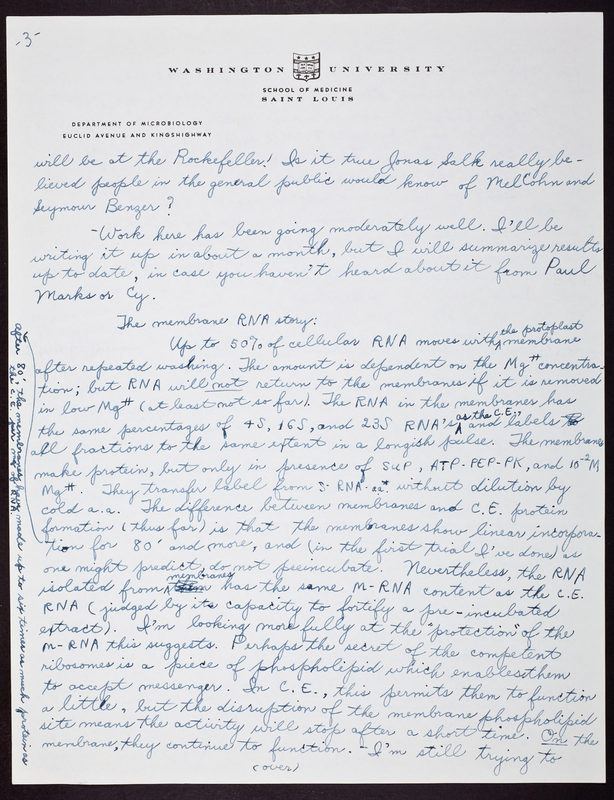 -3-
WASHINGTON UNIVERSITY
SCHOOL OF MEDICINE
SAINT LOUIS
DEPARTMENT OF MICROBIOLOGY
EUCLID AVENUE AND KINGSHIGHWAY
will be at the Rockefeller! Is it true Jonas Salk really be-
lieved people in the general public would know of Mel Cohn and
Seymour Benzer?
-Work here has been going moderately well. I'll be
writing it up in about a month, but I will summarize results
up to date, in case you haven't heard about it from Paul
Marks or Cy.
The membrane RNA story:
Up to 50% of cellular RNA moves with the protoplast membrane
after repeated washing. The amount is dependent on the Mg++ concentra-
tion; but RNA will not return to the membranes if it is removed
in low Mg++ (at least not so far). The RNA in the membranes has
the same percentages of 4S, 16S, and 23S RNA's as the C.E., and labels
all fractions to the same extent in a longish pulse. The membranes
make protein, but only in presence of SUP, ATP-PEP-PK, and 10-2M
Mg++. They transfer label from S-RNA-aa* without dilution by
cold a.a. The difference between membranes and C.E. protein
formation (thus far) is that the membranes show linear incorpora-
tion for 80' and more, and (in the first trial I've done) as
one might predict, do not preincubate. Nevertheless, the RNA
isolated from membranes has the same M-RNA content as the C.E.
RNA (judged by its capacity to fortify a pre-incubated
extract). I'm looking more fully at the "protection" of the
M-RNA this suggests. Perhaps the secret of the competent
ribosomes is a piece of phospholipid which enables them
to accept messenger. In C.E., this permits them to function
a little, but the disruption of the membrane phospholipid
site means the activity will stop after a short time. On the
membrane, they continue to function. -I'm still trying to
(over)
After 80', the membranes have made up to six times as much protein as
the C.E. per mg of RNA.